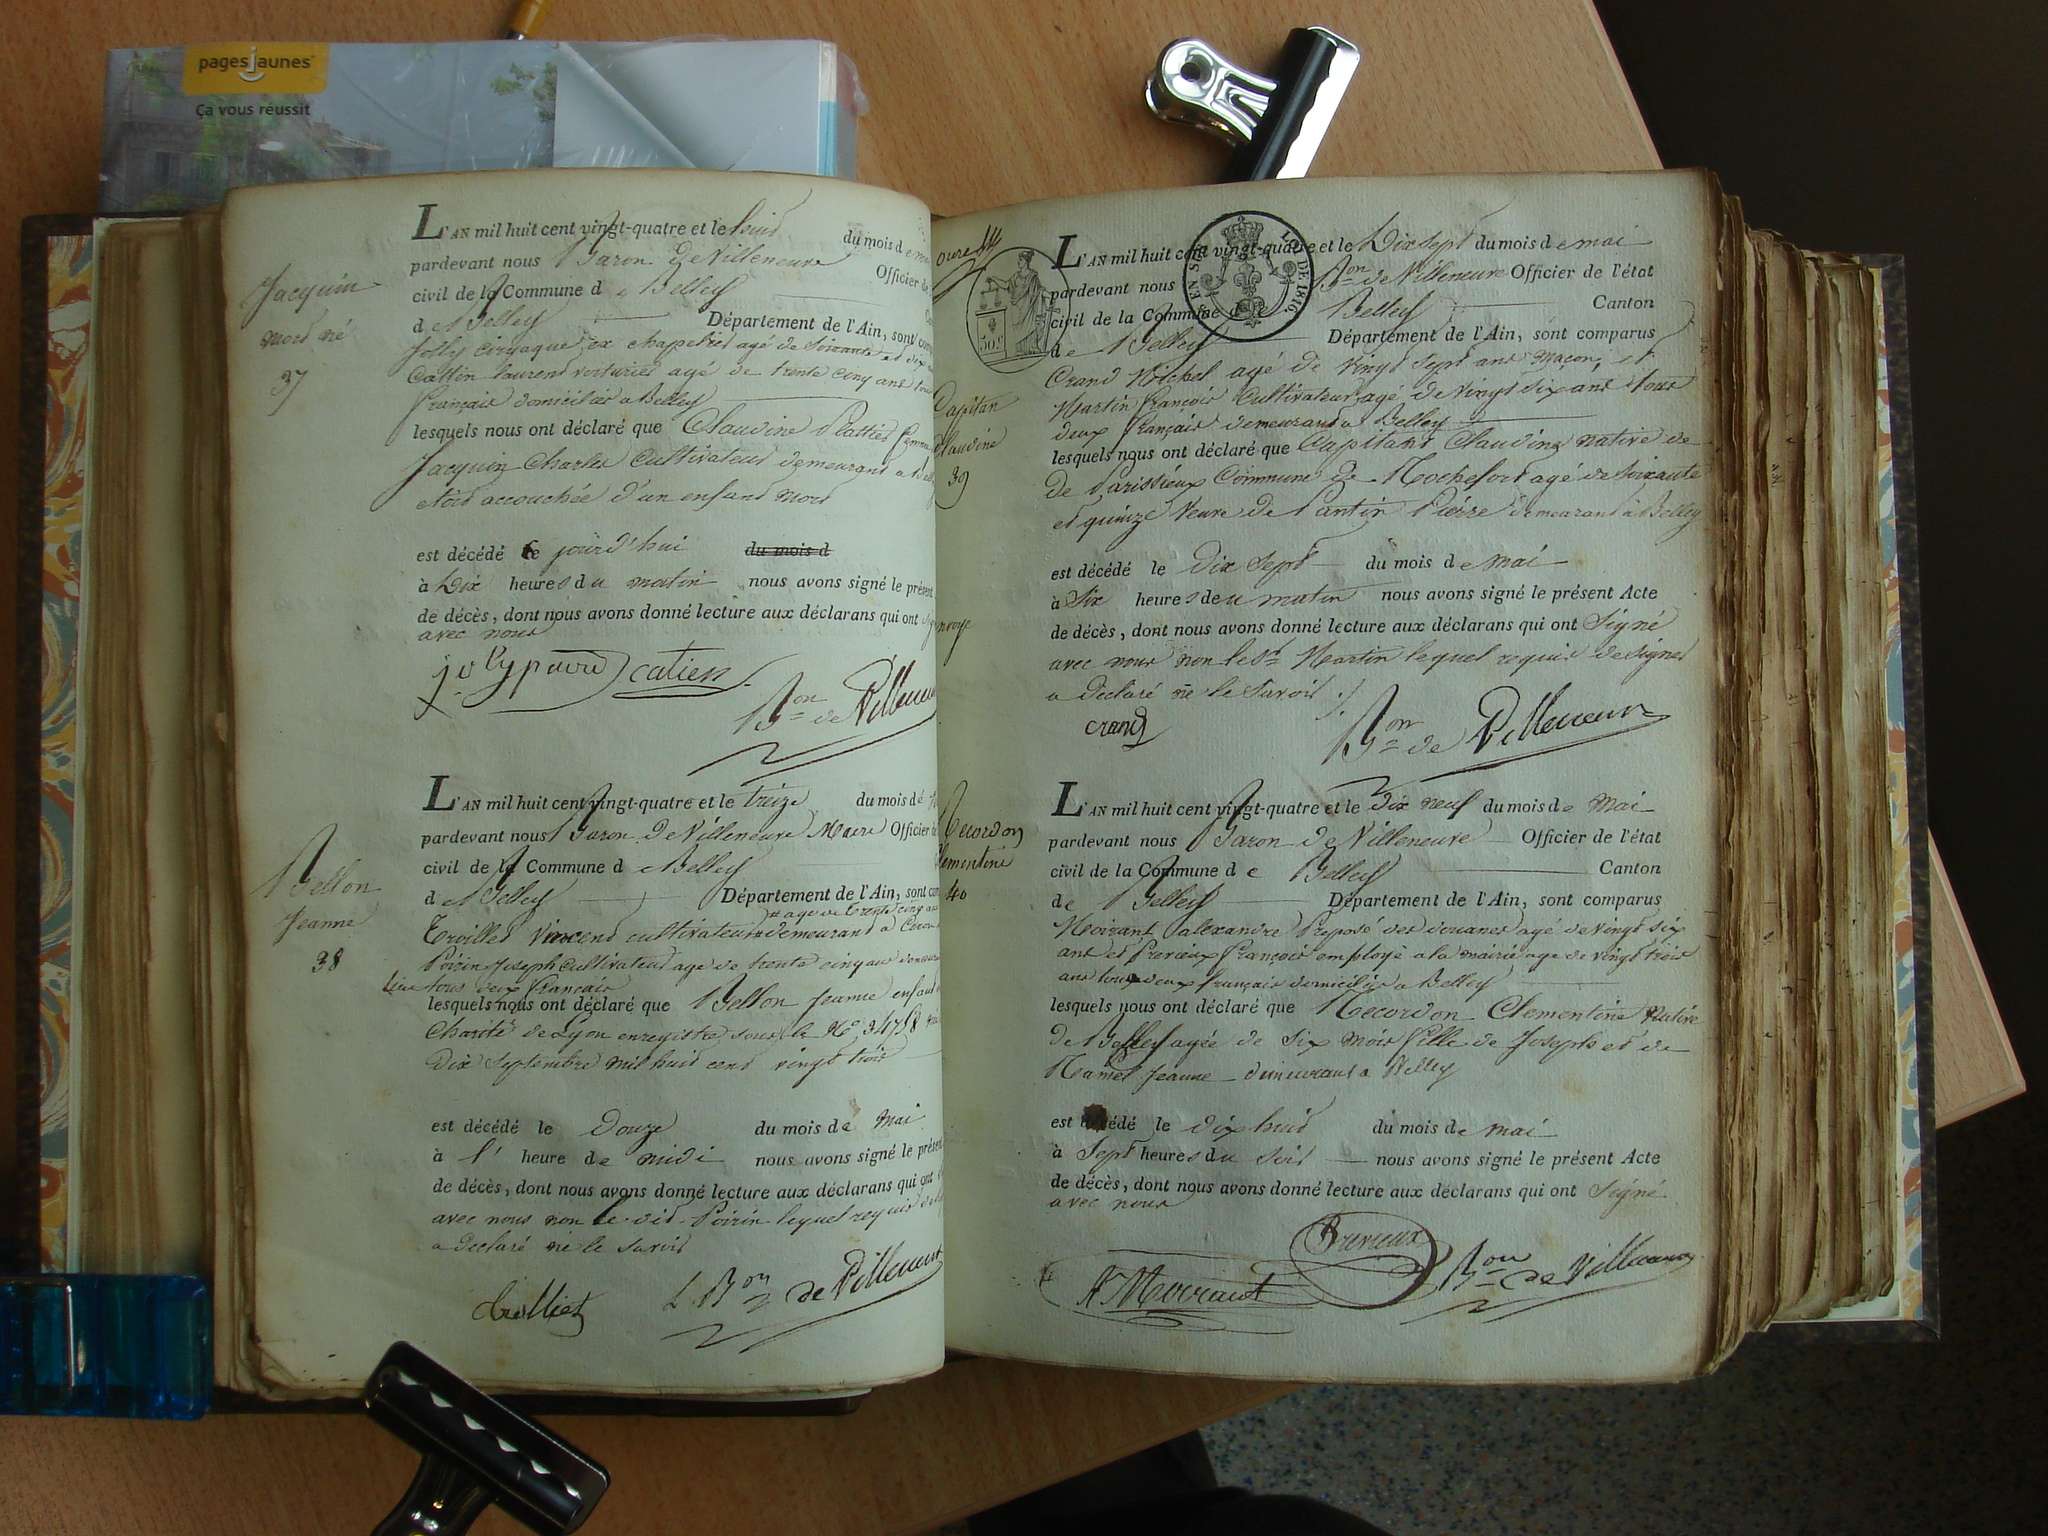 pagesjaunes
Ça vous réussit
Jacquin
mort né
37
L'AN mil huit cent vingt-quatre et le huit du mois de
pardevant nous Baron de Villeneuve Officier de
civil de la Commune de Belley
de Belley Département de l'Ain, sont
Jolly ciryaque ex chapelier agé de Soixante et dix
Cattin laurent voiturier agé de trente cinq ans tous
français domiciliés a Belley
lesquels nous ont déclaré que Claudine femme
Jacquin Charles Cultivateur demeurant a
etoit accouchée d'un enfant mort
est décédé ce jourd'hui du mois d
à Dix heures du matin nous avons signé le présent
de décès, dont nous avons donné lecture aux déclarans qui ont
avec nous
catien
Bon de Villeneuve
Bellon
Jeanne
38
L'AN mil huit cent vingt-quatre et le treize du mois de
pardevant nous Baron de Villeneuve Maire Officier
civil de la Commune de Belley
de Belley Département de l'Ain, sont
agé de trente cinq ans
Trolliet Vincent cultivateur demeurant a
Poirin Joseph Cultivateur agé de trente cinq ans
tous deux français
lesquels nous ont déclaré que Bellon Jeanne enfant
Charité de Lyon enregistré sous le No 34758
dix Septembre mil huit cent vingt trois
est décédé le Douze du mois de Mai
à l' heure de midi nous avons signé le présent
de décès, dont nous avons donné lecture aux déclarans qui ont
avec nous non le dit Poirin lequel requis de
a déclaré ne le savoir
trolliet
L. Bon de Villeneuve
50 c
LOI DE 1816
L'AN mil huit cent vingt-quatre et le Dix Sept du mois de mai
pardevant nous Bon de Villeneuve Officier de l'état
civil de la Commune de Belley Canton
de Belley Département de l'Ain, sont comparus
Crand Michel agé de vingt sept ans Maçon, et
Martin françois Cultivateur agé de vingt six ans tous
deux français demeurant a Belley
Capitan
Claudine
39
lesquels nous ont déclaré que Capitant Claudine native de
de Parissieux Commune de Rochefort agé de Soixante
et quinze Veuve de Pantin Pierre demeurant à Belley
est décédé le Dix Sept du mois de mai
à Six heures du matin nous avons signé le présent Acte
de décès, dont nous avons donné lecture aux déclarans qui ont Signé
avec nous non le St Martin lequel requis de signer
a déclaré ne le savoir
crand
Bon de Villeneuve
Recordon
Clementine
40
L'AN mil huit cent vingt-quatre et le Dix neuf du mois de Mai
pardevant nous Baron de Villeneuve Officier de l'état
civil de la Commune de Belley Canton
de Belley Département de l'Ain, sont comparus
Moirant alexandre Preposé des douanes agé de vingt six
ans et Prerieux François employé a la mairie age de vingt trois
ans tous deux français domiciliés a Belley
lesquels nous ont déclaré que Recordon Clementine Native
de Belley agée de Six mois fille de Joseph et de
Jeanne demeurant a Belley
est décédé le dix huit du mois de mai
à Sept heures du soir nous avons signé le présent Acte
de décès, dont nous avons donné lecture aux déclarans qui ont Signé
avec nous
Prerieux
A Moirant
Bon de Villeneuve